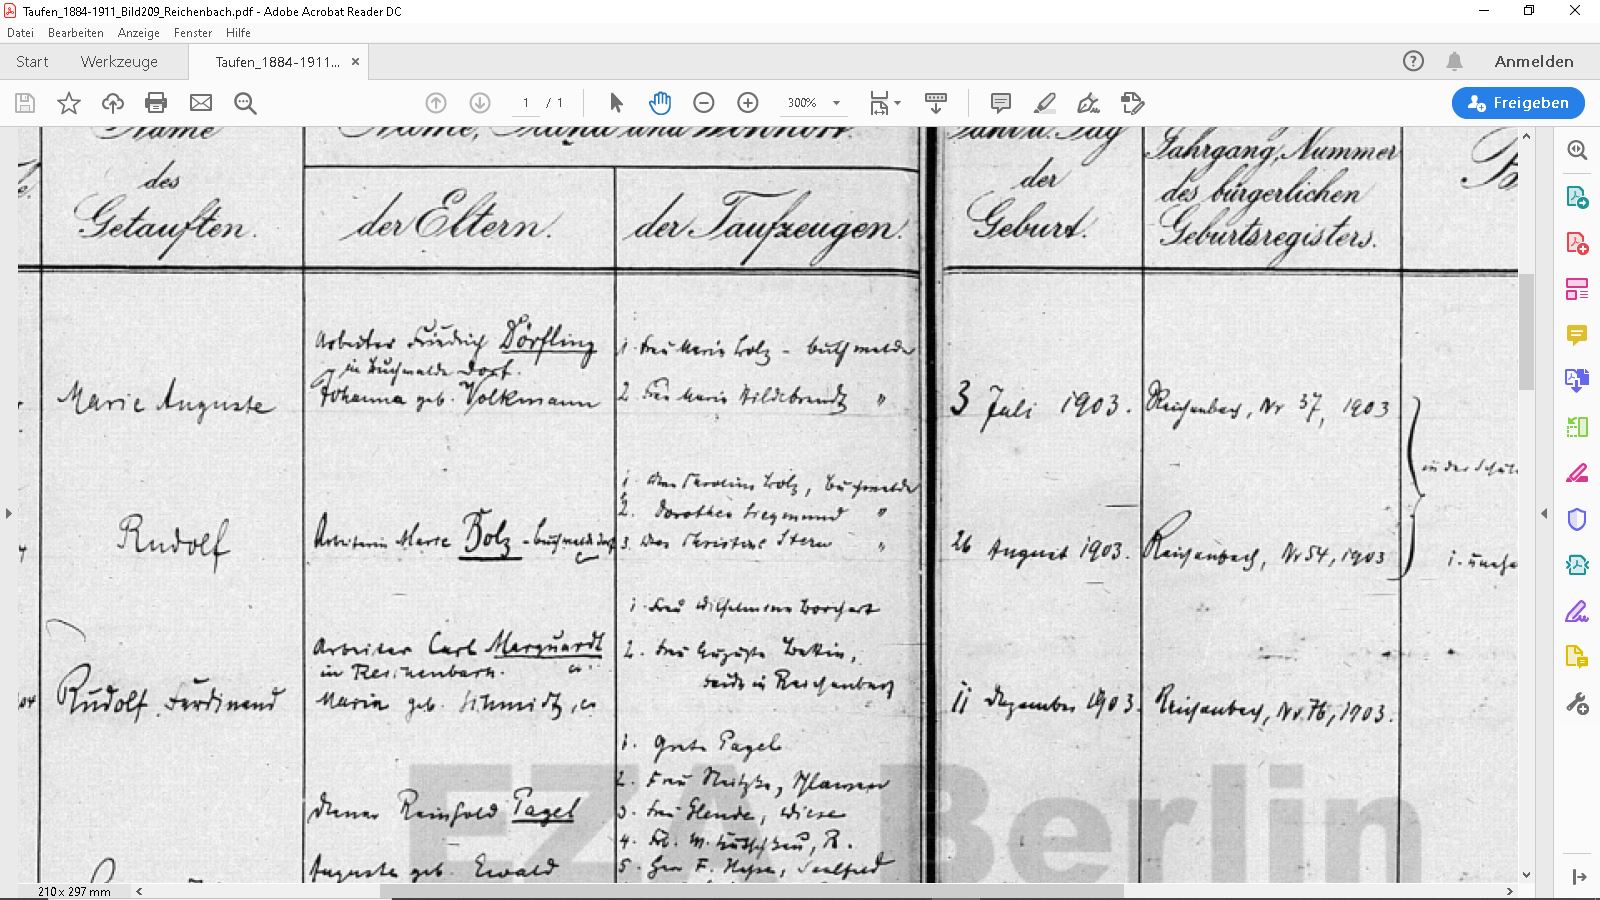 Taufen_1884-1911_Bild209_Reichenbach.pdf - Adobe Acrobat Reader DC
Datei Bearbeiten Anzeige Fenster Hilfe
Start Werkzeuge Taufen_1884-1911... × Anmelden
1 / 1 300% Freigeben
Name Name, Stand und Wohnort. Jahr u. Tag Jahrgang, Nummer
des der des bürgerlichen
Getauften. der Eltern. der Taufzeugen. Geburt. Geburtsregisters.
Arbeiter Friedrich Dörfling 1. Frau Marie Bolz - Buchwalde
in Buchwalde Dorf.
Marie Auguste Johanna geb. Volkmann 2. Frau Marie Hildebrandt " 3 Juli 1903. Reichenbach, Nr 37, 1903
in der Schule
1. Caroline Bolz, Buchwalde
2. Dorothea Siegmund "
Rudolf Arbeiterin Marie Bolz - Buchwalde Dorf 3. Christine Stern " 26 August 1903. Reichenbach, Nr 54, 1903
1. Frau Wilhelmine Borchert
Arbeiter Carl Marquardt 2. Frau Auguste
in Reichenbach. beide in Reichenbach
Rudolf Ferdinand Maria geb. Schmidt, 11 Dezember 1903. Reichenbach, Nr. 76, 1903.
1. Grete Pagel
2. Frau
Diener Reinhold Pagel 3. Frau Wiese
4. Frl. M. R.
Auguste geb. Ewald 5. Herr F. Saalfeld
EZA Berlin
210 x 297 mm